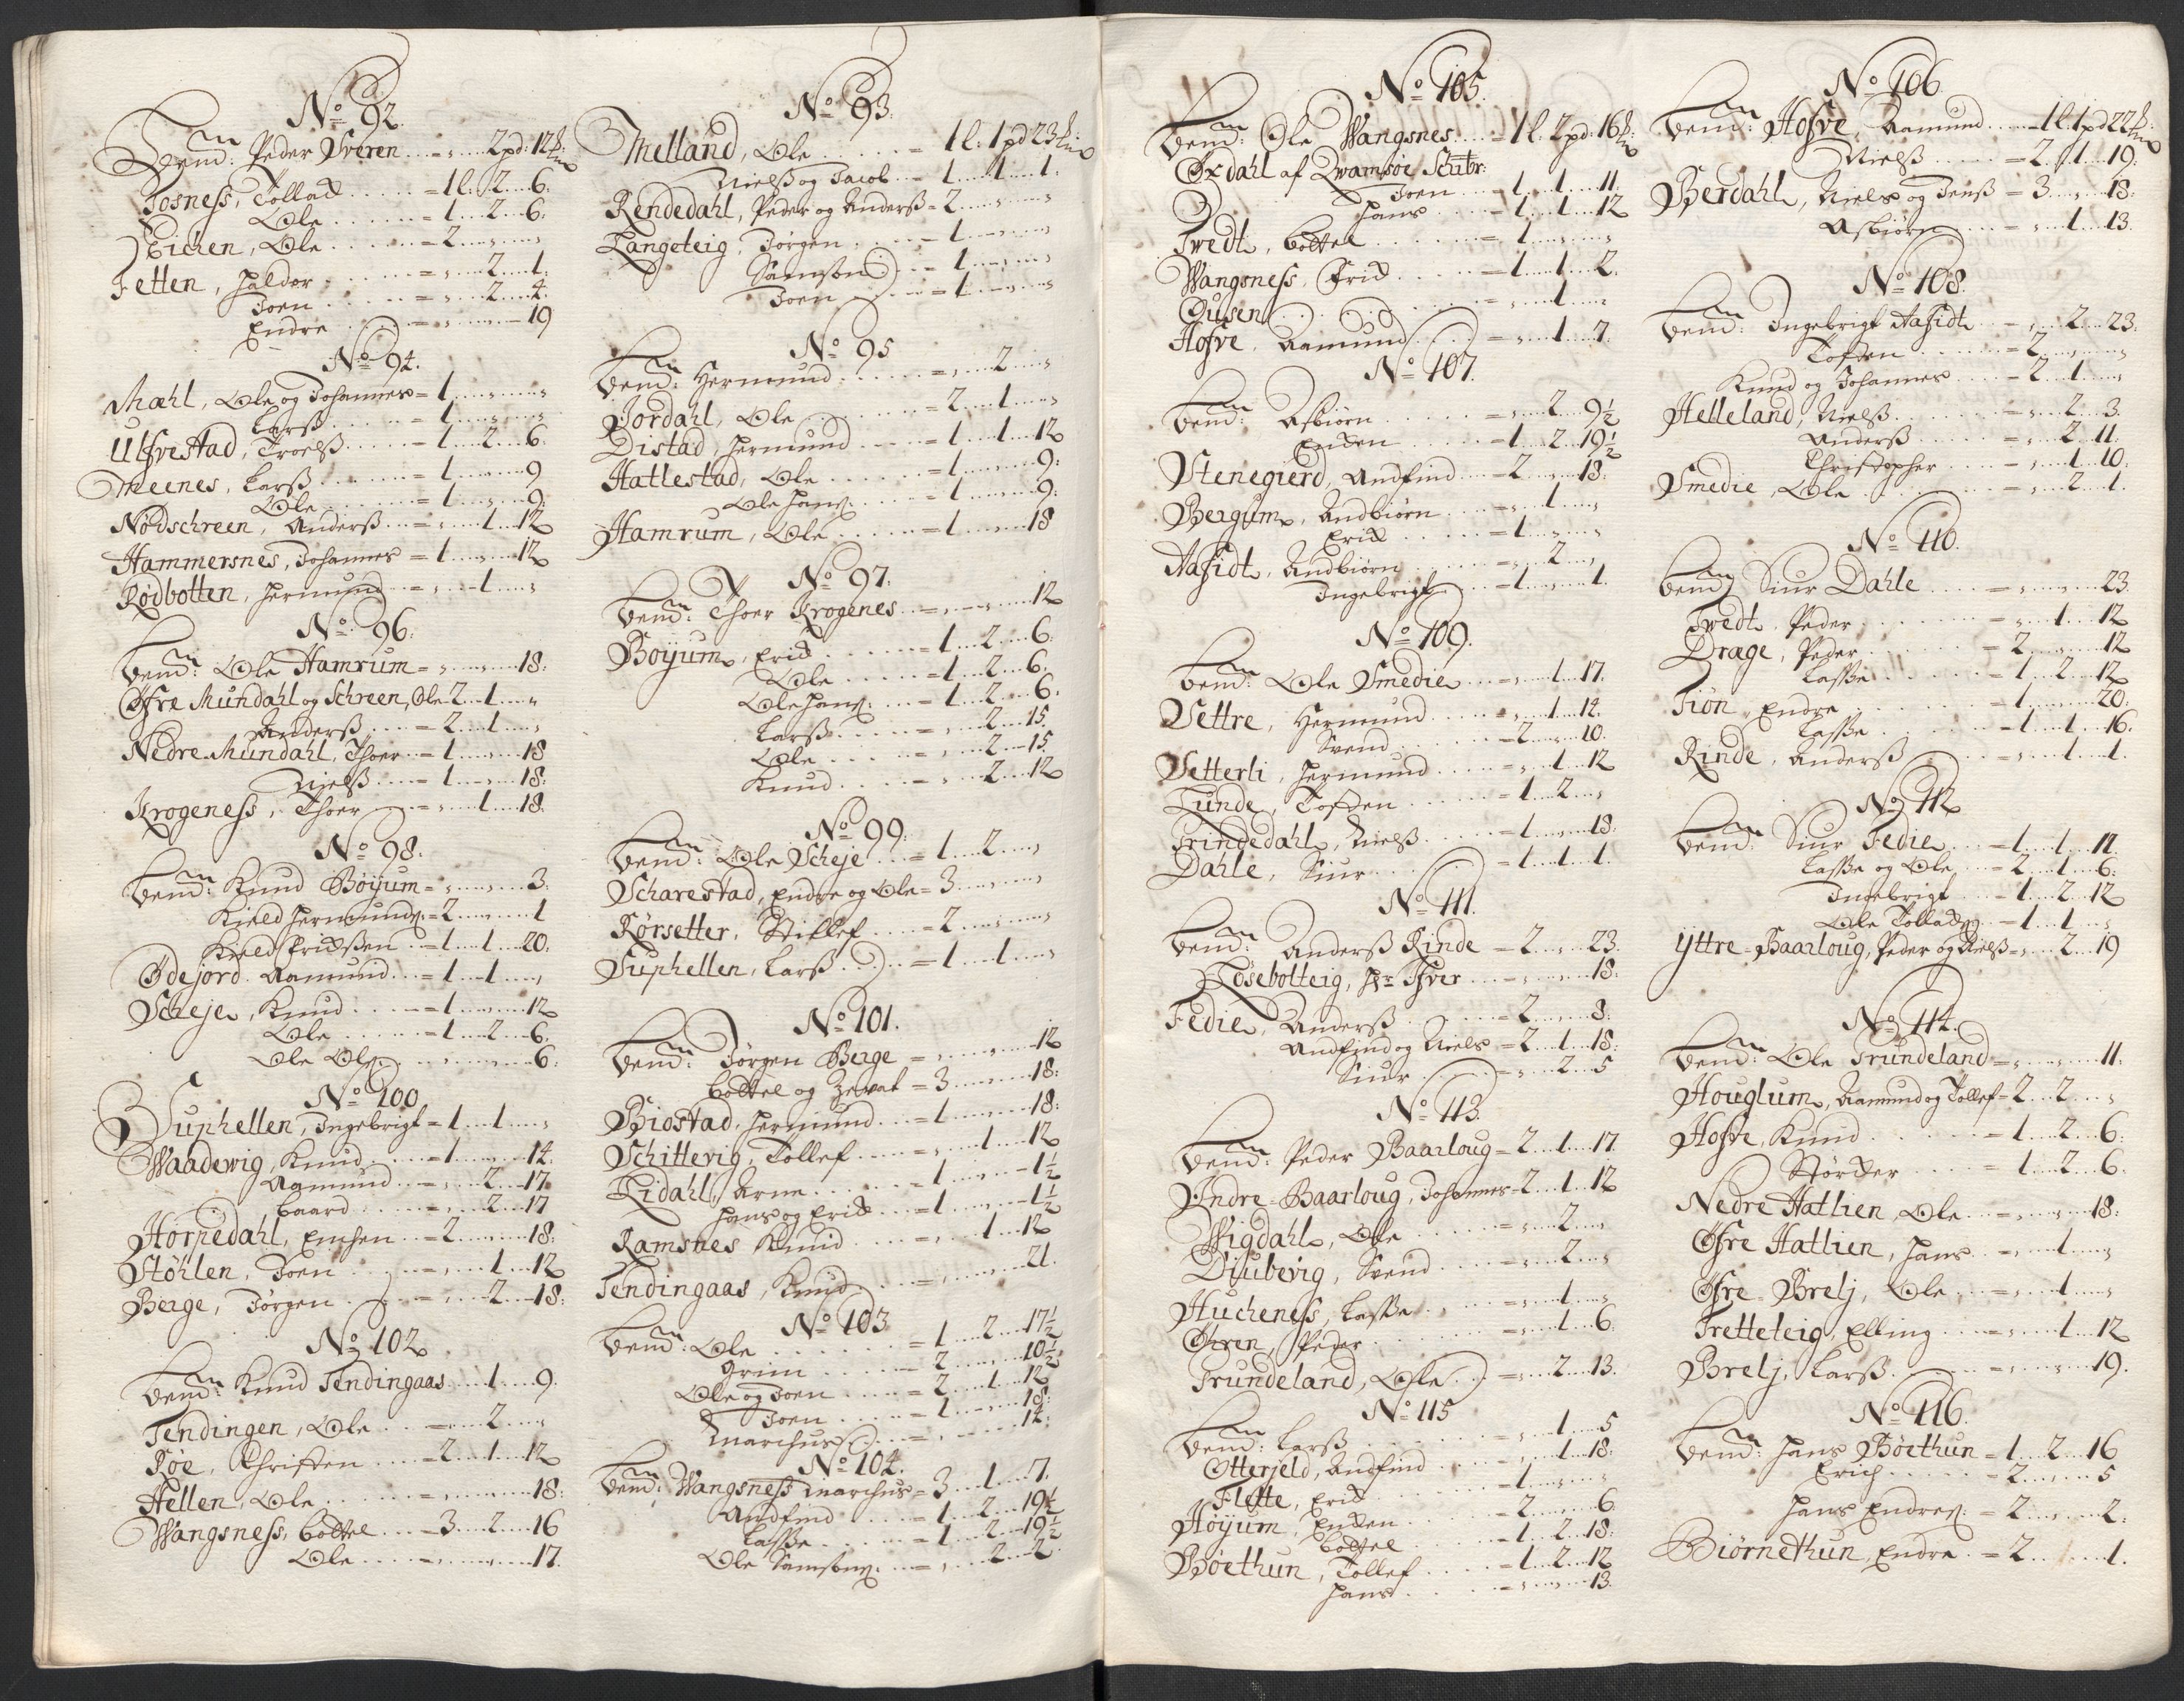 No 92.
Bemte: Peder Sveren „ 2 pd: 12 lb:
Tosness, Tollak = 1 l: 2 6.
Ole = 1 2 6.
Eichen, Ole = 2 „ „
Tetten, Haldor = „ 2 1.
Joen = „ 2 4.
Endre = „ „ 19
No 94.
Mæhl, Ole og Johannes = 1 „ „
Larß = 1 „ „
Ulfvestad, Troelß = 1 2 6.
Meenes, Larß = 1 „ 9
Ole = 1 „ 9.
Nødschreen, Anderß = „ 1 12
Hammersnes, Johannes = 1 „ 12
Rødbotten, Hermund = „ 1 „
No 96.
Bemte: Ole Hamrum = „ „ 18.
Øfre Mundahl og Schreen, Ole 2 1 „
Anderß = 2 1 „
Nedre Mundahl, Thoer = 1 „ 18
Nielß = 1 „ 18.
Krogeness, Thoer = „ 1 18.
No 98.
Bemte: Knud Bøyum = „ „ 3.
Kield Hermunds: = 2 „ 1
Kield Erichssen = 1 1 20.
Ødejord, Aamund = 1 1 „
Scheje, Knud = 1 „ 12
Ole = 1 2 6.
Ole Ols: „ „ 6.
No 100
Suphellen, Ingebrigt = 1 1 „
Waadewig, Knud = 1 „ 14.
Aamund = „ 2 17
Baard = „ 2 17
Horpedahl, Emken = 2 „ 18.
Støhlen, Joen = „ 1 12
Berge, Jørgen = „ 2 18.
No 102
Bemte: Knud Tendingaas 1 9.
Tendingen, Ole = „ 2 „
Røe, Christen = 2 1 12
Hellen, Ole = „ „ 18.
Wangsness, Bottel = 3 2 16
Ole = „ „ 17.
No 93.
Melland, Ole = 1 l: 1 pd 23 lb:
Nielß og Jacob = 1 1 1.
Rendedahl, Peder og Anderß = 2 „ „
Langeteig, Jørgen = 1 „ „
Samson = 1 „ „
Joen = 1 „ „
No 95
Bemte: Hermund = „ 2 „
Jordahl, Ole = 2 1 „
Distad, Hermund = 1 1 12
Hatlestad, Ole = 1 „ 9.
Ole Hans: = 1 „ 9.
Hamrum, Ole = 1 „ 18
No 97.
Bemte: Thoer Krogenes = „ „ 12
Boyum, Erich = 1 2 6.
Ole = 1 2 6.
Ole Hans: = 1 2 6.
Larß = „ 2 15.
Ole = „ 2 15.
Knud = „ 2 12
No 99.
Bemte: Ole Scheje = 1 2 „
Scharestad, Endre og Ole = 3 „ „
Rørsetter, Stillef = 2 „ „
Suphellen, Larß = 1 1 „
No 101.
Bemte: Jørgen Berge = „ „ 12
Bottel og = 3 „ 18.
Biostad, Hermund = 1 „ 18.
Schittevig, Tollef = „ 1 12
Lidahl, Arne = 1 „ 1½
Hans og Erich = 1 „ 1½
Ramsnes Knud = „ 1 12
Tendingaas, Knud = „ „ 21.
No 103
Bemte: Ole = 1 2 17½
Grim = 2 „ 10½
Ole og Joen = 2 1 12
Joen = 1 „ 18.
Marchus = „ „ 14.
No 104.
Bemte: Wangsness Marchus = 3 1 7.
Andfind = 1 2 19½
Lasse = 1 2 19½
Ole Samsons: = „ 2 2
No 105.
Bemte: Ole Wangsnes = 1 l. 2 pd. 16 lb:
Øxdahl af Qvamsøe Schibr:
Joen = 1 1 11.
Hans = 1 1 12
Tvedt, Bottel = 1 „ „
Wangsness, Erich = 1 1 2.
Dusen = „ 1 „
Hofve, Aamund = „ 1 7.
No 107.
Bemte: Asbiørn = „ 2 9½
Enken = 1 2 19½
Stenegierd, Andfind = 2 „ 18.
Bergum, Andbiørn = „ 1 „
Erich = 1 „ „
Aafidt, Andbiørn = „ 2 „
Ingebrigt = 1 „ 1.
No 109.
Bemte: Ole Smedie = „ 1 17.
Settre, Hermund = „ 1 14.
Svend = 2 „ 10.
Setterli, Hermund = „ 1 12
Lunde, Tosten = 1 2 „
Grindedahl, Nielß = 1 „ 18.
Dahle, Siur = 1 1 1.
No 111.
Bemte: Anderß Rinde = 2 „ 23.
Løsebolteig, Hr: Ifver = „ „ 18.
Fedie, Anderß = 2 „ 8.
Andfind og Niels = 2 1 18.
Siur = „ 2 5
No 113.
Bemte: Peder Baarloug = 2 1 17.
Indre-Baarloug, Johannes = 2 1 12
Wigdahl, Ole = „ 2 „
Diubevig, Svend = „ 2 „
Hucheness, Lasse = „ 1 „
Øhren, Peder = „ 1 6.
Trundeland, Ole = „ 2 13.
No 115
Bemte: Larß „ 1 5
Otterjeld, Andfind „ 1 18.
Flette, Erich = 1 „ „
Høyum, Enken = 2 „ 6
Bottel = 1 2 18.
Bøethun, Tollef = 1 2 12
Hans = „ „ 13.
No 106.
Bemte: Hofve, Aamund = 1 l: 1 pd 22 lb:
Nielß = 2 1 19.
Berdahl, Niels og Jenß = 3 „ 18.
Asbiørn = „ 1 13.
No 108.
Bemte: Ingebrigt Aafidt = „ 2 23.
Tosten = 2 „ „
Knud og Johannes = 2 1 „
Helleland, Nielß = „ 2 3.
Anderß = „ 2 11.
Christopher = „ 1 10.
Smedie, Ole = „ 2 1.
No 110.
Bemte: Siur Dahle = „ „ 23.
Tvedt, Peder = „ 1 12
Drage, Peder = 2 „ 12
Lasse = 1 2 12
Tiøn, Endre = 1 „ 20.
Lasse = 1 1 16.
Rinde, Anderß = „ 1 1.
No 112
Bemte: Siur Fedie = 1 1 11.
Lasse og Ole = 2 1 6.
Ingebrigt = 1 2 12
Ole Tollaks: = 1 1 „
Yttre-Baarloug, Peder og Nielß = „ 2 19
No 114.
Bemte: Ole Trundeland = „ „ 11.
Houglum, Aamund og Tollef = 2 2 „
Hofve, Knud = 1 2 6.
Størcker = 1 2 6.
Nedre Hatlien, Ole = „ „ 18.
Øfre Hatlien, Hans = „ 1 „
Øfre-Brelj, Ole = „ 1 „
Tretteteig, Elling = „ 1 12
Brelj, Larß = „ „ 19.
No 116.
Bemte: Hans Bøethun = 1 2 16
Erich = 2 „ 5
Hans Endres: = 2 „ 2.
Biørnethun, Endre = 2 „ 1.